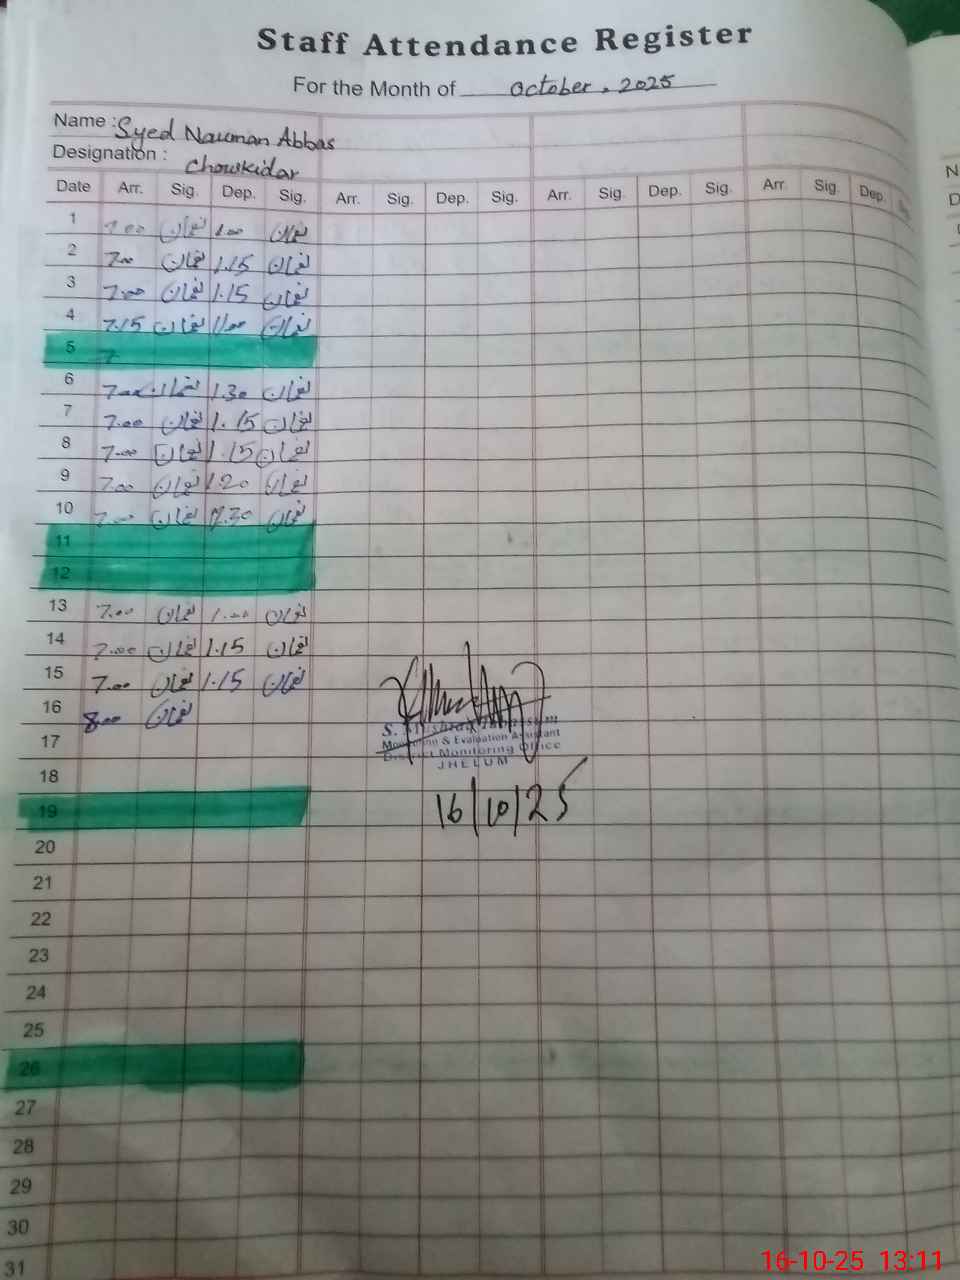 Staff Attendance Register
For the Month of October, 2025
Name : Syed Nauman Abbas
Designation : Chowkidar
Date Arr. Sig. Dep. Sig. Arr. Sig. Dep. Sig. Arr. Sig. Dep. Sig. Arr. Sig. Dep.
1 7.00 نعمان 1.00 نعمان
2 7.00 نعمان 1.15 نعمان
3 7.00 نعمان 1.15 نعمان
4 7.15 نعمان 1.00 نعمان
5 7
6 7.00 نعمان 1.30 نعمان
7 7.00 نعمان 1.15 نعمان
8 7.00 نعمان 1.15 نعمان
9 7.00 نعمان 1.20 نعمان
10 7.00 نعمان نعمان
11
12
13 7.00 نعمان 1.00 نعمان
14 7.00 نعمان 1.15 نعمان
15 7.00 نعمان 1.15 نعمان
16 8.00 نعمان
17
18
19
20
21
22
23
24
25
26
27
28
29
30
31
& Evaluation Assistant
District Monitoring Office
JHELUM
16/10/25
N
D
16-10-25 13:11